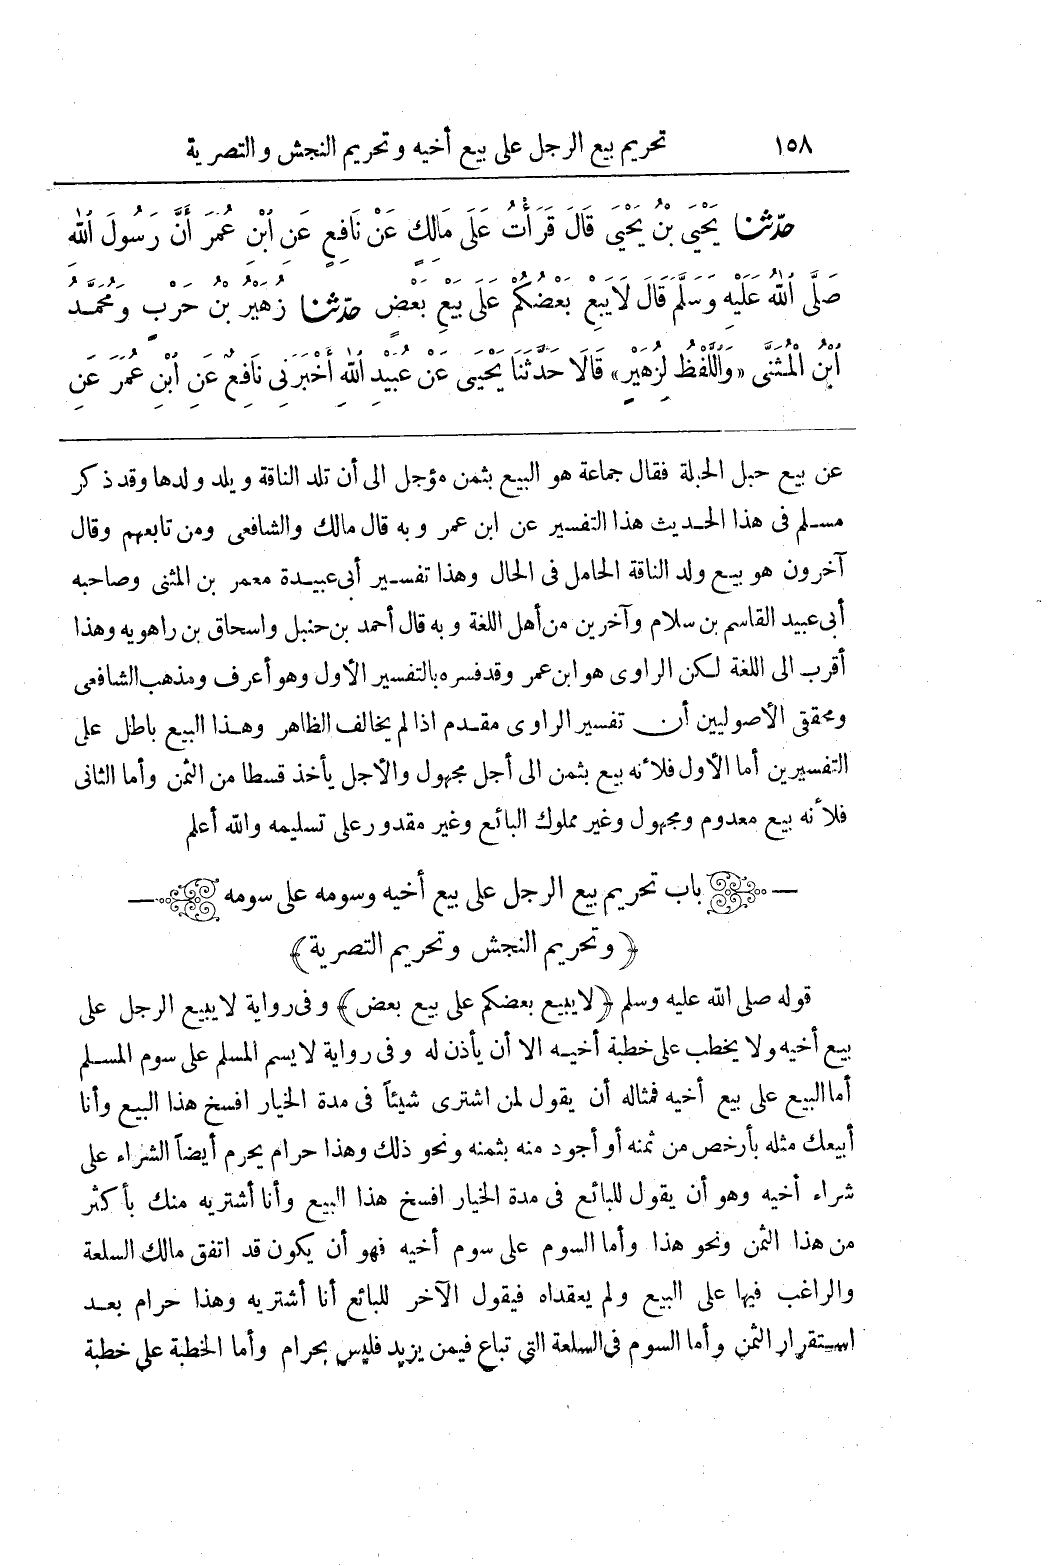 ١٥٨ تحريم بيع الرجل على بيع أخيه وتحريم النجش والتصرية
حدثنا يَحْيَى بْنُ يَحْيَى قَالَ قَرَأْتُ عَلَى مَالِكٍ عَنْ نَافِعٍ عَنِ ابْنِ عُمَرَ أَنَّ رَسُولَ اللهِ
صَلَّى اللهُ عَلَيْهِ وَسَلَّمَ قَالَ لَا يَبِعْ بَعْضُكُمْ عَلَى بَيْعِ بَعْضٍ حدثنا زُهَيْرُ بْنُ حَرْبٍ وَمُحَمَّدُ
ابْنُ الْمُثَنَّى «وَاللَّفْظُ لِزُهَيْرٍ» قَالَا حَدَّثَنَا يَحْيَى عَنْ عُبَيْدِ اللهِ أَخْبَرَنِى نَافِعٌ عَنِ ابْنِ عُمَرَ عَنِ
عن بيع حبل الحبلة فقال جماعة هو البيع بثمن مؤجل الى أن تلد الناقة ويلد ولدها وقد ذكر
مسلم فى هذا الحديث هذا التفسير عن ابن عمر وبه قال مالك والشافعى ومن تابعهم وقال
آخرون هو بيع ولد الناقة الحامل فى الحال وهذا تفسير أبى عبيدة معمر بن المثنى وصاحبه
أبى عبيد القاسم بن سلام وآخرين من أهل اللغة وبه قال أحمد بن حنبل واسحاق بن راهويه وهذا
أقرب الى اللغة لكن الراوى هو ابن عمر وقد فسره بالتفسير الأول وهو أعرف ومذهب الشافعى
ومحققى الأصوليين أن تفسير الراوى مقدم اذا لم يخالف الظاهر وهذا البيع باطل على
التفسيرين أما الأول فلأنه بيع بثمن الى أجل مجهول والأجل يأخذ قسطا من الثمن وأما الثانى
فلأنه بيع معدوم ومجهول وغير مملوك البائع وغير مقدور على تسليمه والله أعلم
باب تحريم بيع الرجل على بيع أخيه وسومه على سومه
﴿وتحريم النجش وتحريم التصرية﴾
قوله صلى الله عليه وسلم ﴿لا يبيع بعضكم على بيع بعض﴾ وفى رواية لا يبيع الرجل على
بيع أخيه ولا يخطب على خطبة أخيه الا أن يأذن له وفى رواية لا يسم المسلم على سوم المسلم
أما البيع على بيع أخيه فمثاله أن يقول لمن اشترى شيئاً فى مدة الخيار افسخ هذا البيع وأنا
أبيعك مثله بأرخص من ثمنه أو أجود منه بثمنه ونحو ذلك وهذا حرام يحرم أيضاً الشراء على
شراء أخيه وهو أن يقول للبائع فى مدة الخيار افسخ هذا البيع وأنا أشتريه منك بأكثر
من هذا الثمن ونحو هذا وأما السوم على سوم أخيه فهو أن يكون قد اتفق مالك السلعة
والراغب فيها على البيع ولم يعقداه فيقول الآخر للبائع أنا أشتريه وهذا حرام بعد
استقرار الثمن وأما السوم فى السلعة التي تباع فيمن يزيد فليس بحرام وأما الخطبة على خطبة